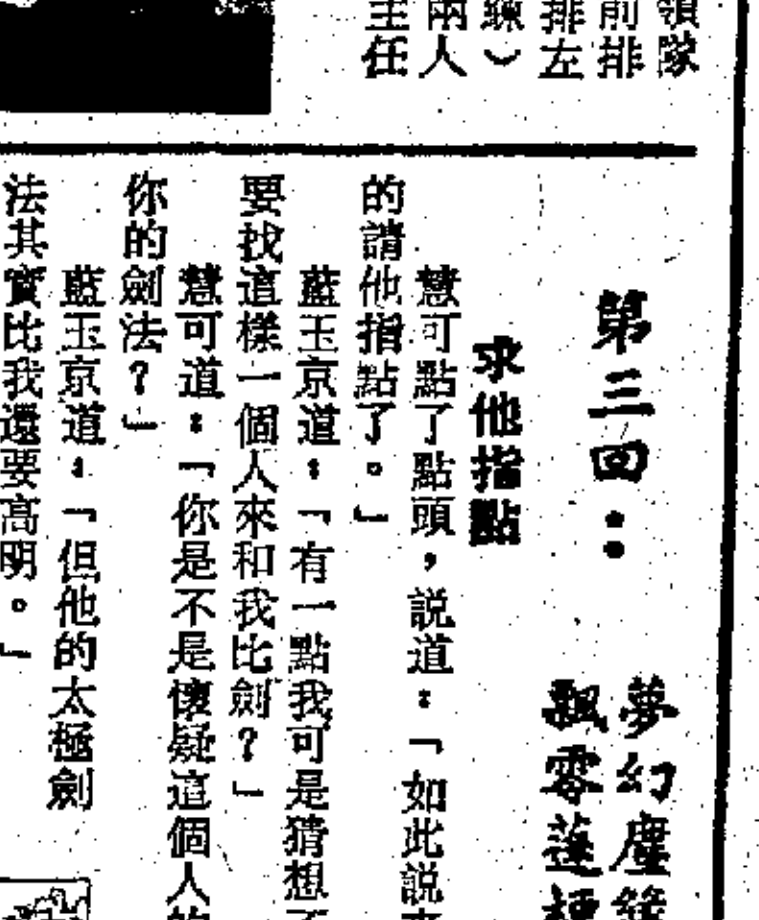 領隊
前排
排左
︶
兩人
主任
第三回：
夢幻塵
飄零蓬
求他指點
慧可點了點頭，説道：「如此説
的請他指點了。」
藍玉京道：「有一點我可是猜想
要找這樣一個人來和我比劍？」
慧可道：「你是不是懷疑這個人
你的劍法？」
藍玉京道：「但他的太極劍
法其實比我還要高明。」